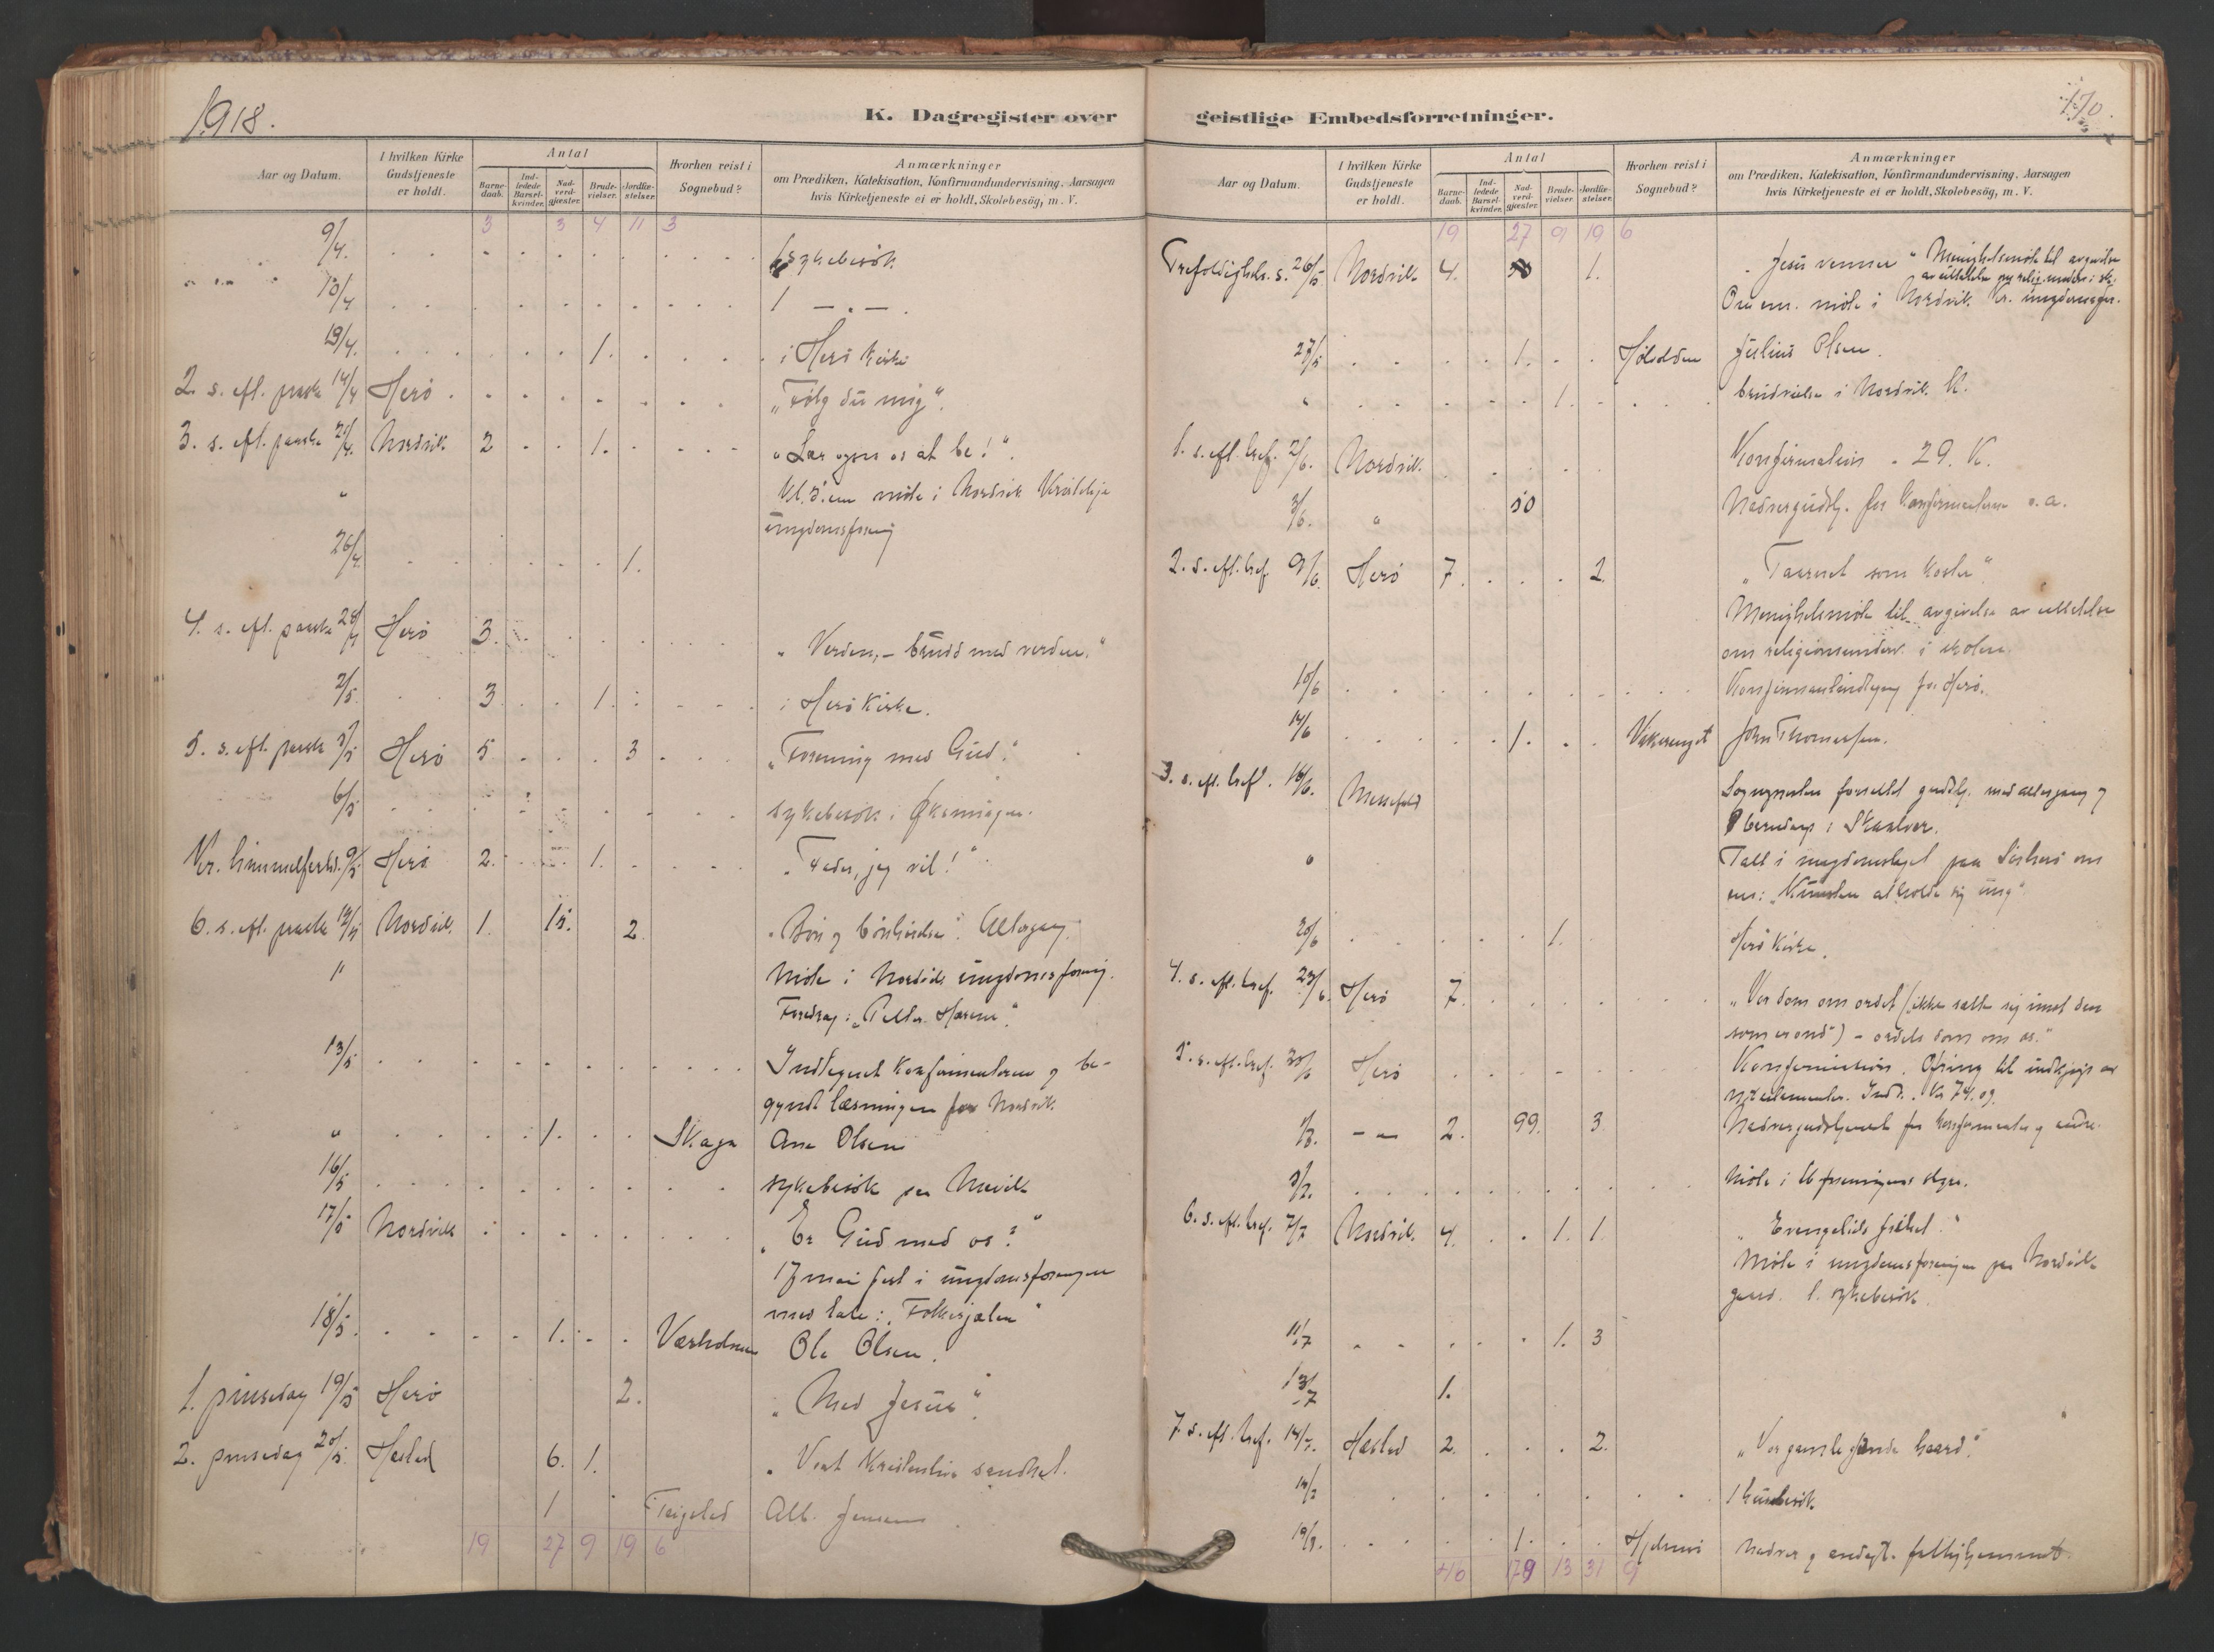 1918.
K. Dagregister over
Aar og Datum.
I hvilken Kirke Gudstjeneste er holdt.
Antal
Barne-daab.
Ind-ledede Barsel-kvinder.
Nad-verd-gjæster.
Brude-vielser.
Jordfæ-stelser.
Hvorhen reist i Sognebud?
Anmærkninger
om Prædiken, Katekisation, Konfirmandundervisning. Aarsagen
hvis Kirketjeneste ei er holdt, Skolebesög, m. V.
3 3 4 11 3
9/4. sykebesök
13/4 1 — " —
13/4. 1. i Herö Kirke
2. s. eft. paaske 14/4 Herö "Fölg du mig".
3. s. eft. paaske 21/4. Nordvik 2 1. "Lær ogsaa os at be!".
" Kl. 3 em möte i Nordvik Kristelige
ungdomsforening
26/4. 1.
4. s. eft. paaske 28/4 Herö 3. "Verden, - brudd med verden."
2/5. 3. 1. i Herö Kirke.
5. s. eft. paaske 5/5 Herö 5 3 "Forening med Gud."
6/5 sykebesök i Öksningen.
Kr. himmelfartsd. 9/5 Herö 2. 1. "Fader, jeg vil!"
6. s. eft. paaske 12/5 Nordvik 1. 15. 2. "Bön og bönhörelse". Altergang.
" Möte i Nordvik ungdomsforening.
Foredrag: "Petter
13/5 Indtegnet Konfirmanterne og be-
gyndt læsningen for Nordvik
" 1. Skaga Ane Olsen
16/5 sykebesök paa
17/5 Nordvik "Er Gud med os?"
17 mai fest i ungdomsforeningen
med tale: "Folkesjælen"
18/5. 1. Ole Olsen.
1. pinsedag 19/5 Herö 2. "Med Jesus".
2. pinsedag 20/5. Hæstad 6. 1. "Vort Kristenlivs sundhet.
1 Teigstad Alb. Jensen
19 27 9 19 6
geistlige Embedsforretninger.
170.
Aar og Datum.
I hvilken Kirke Gudstjeneste er holdt.
Antal
Barne-daab.
Ind-ledede Barsel-kvinder.
Nad-verd-gjæster.
Brude-vielser.
Jordfæ-stelser.
Hvorhen reist i Sognebud?
Anmærkninger
om Prædiken, Katekisation, Konfirmandundervisning. Aarsagen
hvis Kirketjeneste ei er holdt, Skolebesög, m. V.
19 27 9 19 6
Trefoldighets. s. 26/5 Nordvik 4. 1. "Jesu venner" Menighetsmöte til avgivelse
av uttalelse om relig. underv. i sk.
möte i Nordvik Kr. ungdomsfor.
27/5 1. Julius Olsen.
" 1. brudvielse i Nordvik K.
1. s. eft. tref. 2/6. Nordvik. Konfirmation. 29. K.
3/6. " 50 Nadvergudstj. for Konfirmanterne o.a.
2. s. eft. tref. 9/6. Herö 7. 2. "Taarnet som koster".
Menighetsmöte til avgivelse av uttalelse
om religionsunderv. i skolen.
10/6 Konfirmantindtegning for Herö.
14/6 1. John Thomassen.
3. s. eft. tref. 16/6. Messefald Sognepresten forrettet gudstj. med altergang og
barnedaap i Skaalvær.
" Talt i ungdomslaget paa Sörherö om
em: "Kunsten at holde sig ung".
20/6 1. Herö Kirke.
4. s. eft. tref. 23/6 Herö 7. "Vor dom om ordet ("ikke sætte sig imot den
som er ond") - ordets dom om os."
5. s. eft. tref. 30/6 Herö Konfirmation. Ofring til indkjöp av
nytestamenter. Indk. Kr 74.09.
1/7. — " — 2. 99. 3 Nadvergudstjeneste for konfirmanter og andre.
3/7. Möte i
6. s. eft. tref. 7/7 Nordvik. 4. 1. 1. "Evangeliets frihet."
Möte i ungdomsforeningen paa Nordvik
gaard. 1. sykebesök.
11/7 1. 3
13/7 1.
7. s. eft. tref. 14/7. Hæstad 2. 2. "Vor gamle fiende haard."
1 husbesök
19/7. 1. Nadver og
+16 179 13 31 9